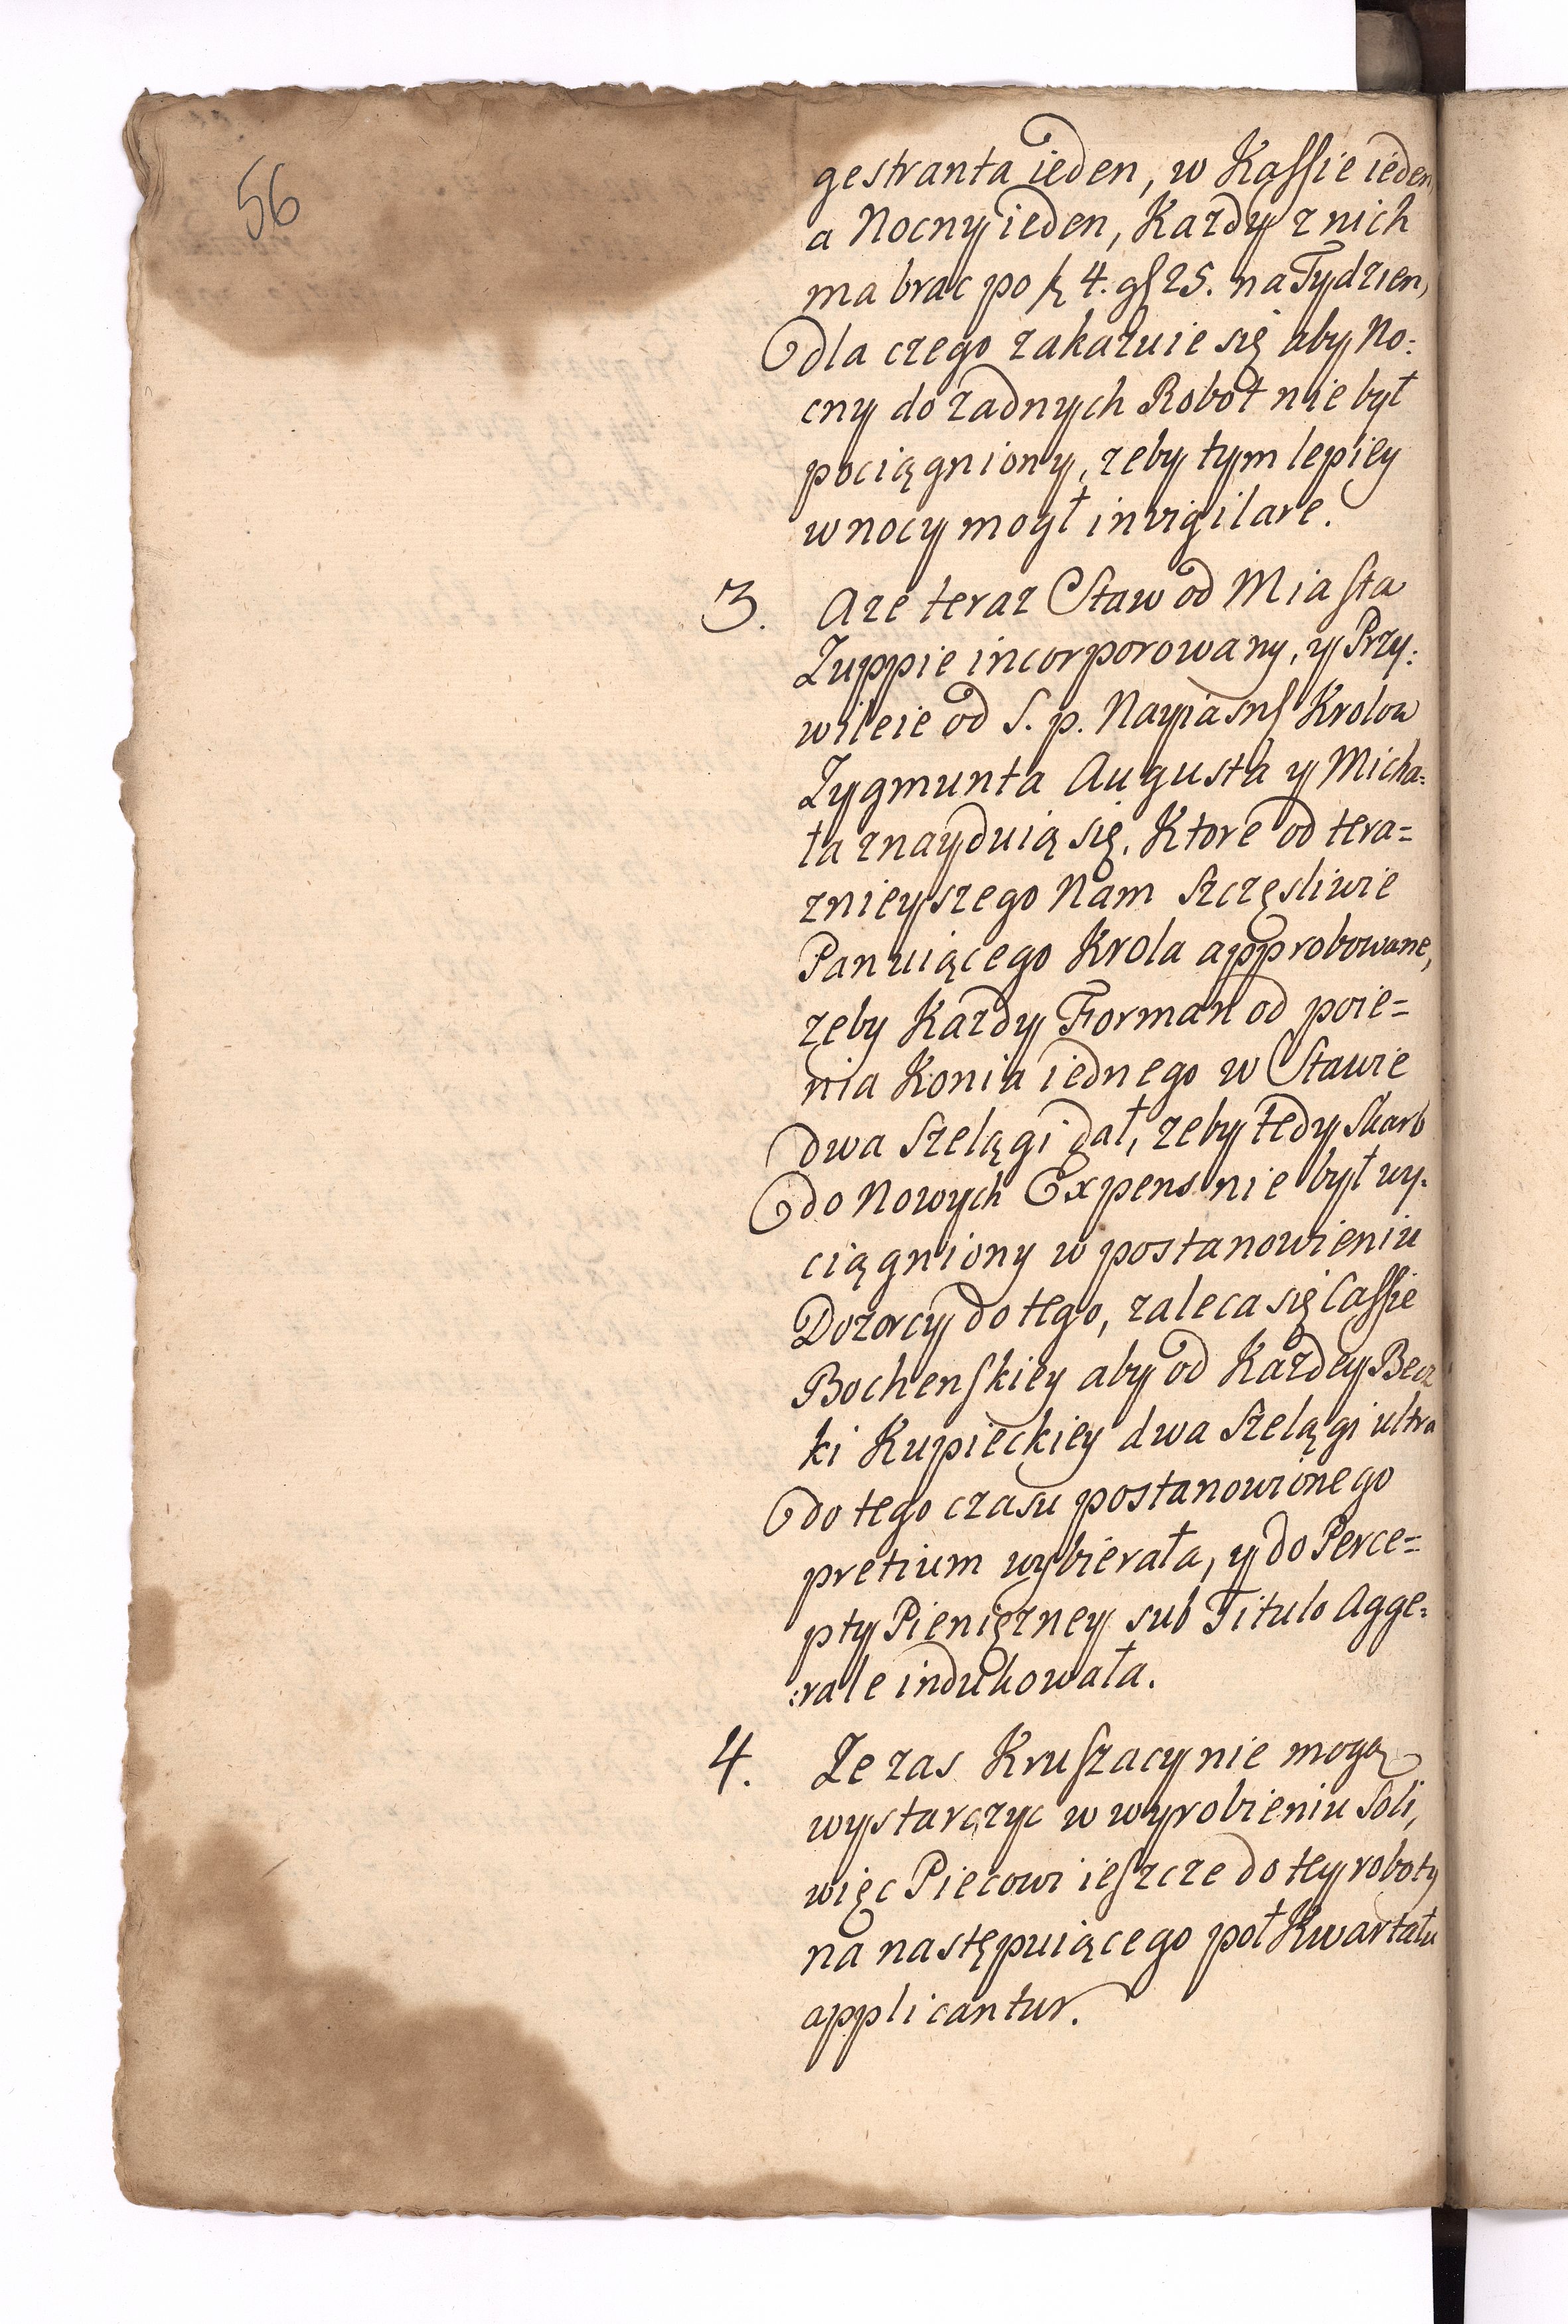 56
gestranta ieden, w Kassie ieden
a Nocny ieden, Kazdy z nich
ma brac po f. 4. gſ 25. na Tydzien,
dla czego zakazuie się aby No:
cny do zadnych Robot nie był
pociągniony, zeby tym lepiey
w nocy mogł invigilare.
3. Aze teraz Staw od Miasta
Zuppie incorporowany, y Przy:
wileie od S. p. Nayiasnſ Krolow
Zygmunta Augusta y Micha:
ła znayduią się, Ktore od tera=
znieyszego Nam Szczęsliwie
Panuiącego Krola approbowane,
zeby Kazdy Forman od poie=
nia Konia iednego w Stawie
dwa Szelągi dał, zeby tedy Skarb
do Nowych Expens nie był wy:
ciągniony w postanowieniu
Dozorcy do tego, zaleca się Cassie
Bochenskiey aby od Kazdey Becz
ki Kupieckiey dwa Szelągi ultra
do tego czasu postanowionego
pretium wybierała, y do Perce=
pty Pienięzney sub Titulo Agge:
:rale indukowała.
4. Ze zas Kruszacy nie mogą
wystarczyc w wyrobieniu Soli,
więc Piecowi ieszcze do tey roboty
na następuiącego poł Kwartału
applicantur.